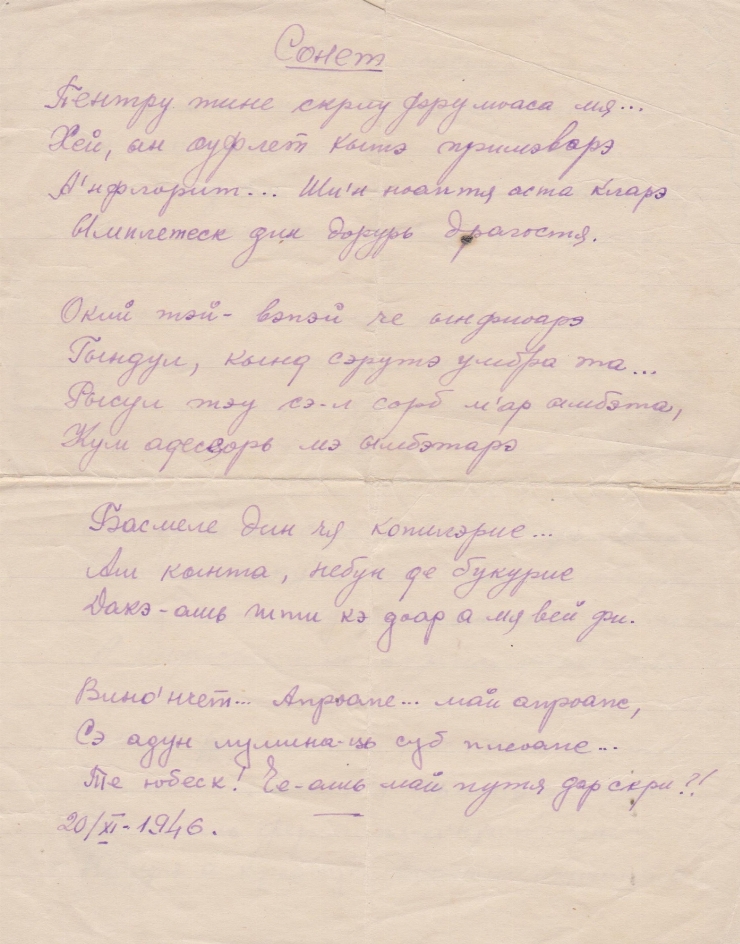 Сонет
Пентру тине скриу фрумоаса мя...
Хей, ын суфлет кытэ примэварэ
А'нфлорит... Ши'н ноаптя аста кларэ
Ымплетеск дин дорурь драгостя.
Окий тэй - вэпэй че ынфиоарэ
Гындул, кынд сэрутэ умбра та...
Рысул тэу сэ-л сорб м'ар ымбэта,
Кум адесеорь мэ ымбэтарэ
Басмеле дин чя копилэрие...
Ам кынта, небун де букурие
Дакэ-аш шти кэ доар а мя вей фи.
Вино'нчет... Апроапе... май апроапе,
Сэ адун лумина-ць суб плеоапе...
Те юбеск! Че-ашь май путя дар скри?!
20/XI-1946.